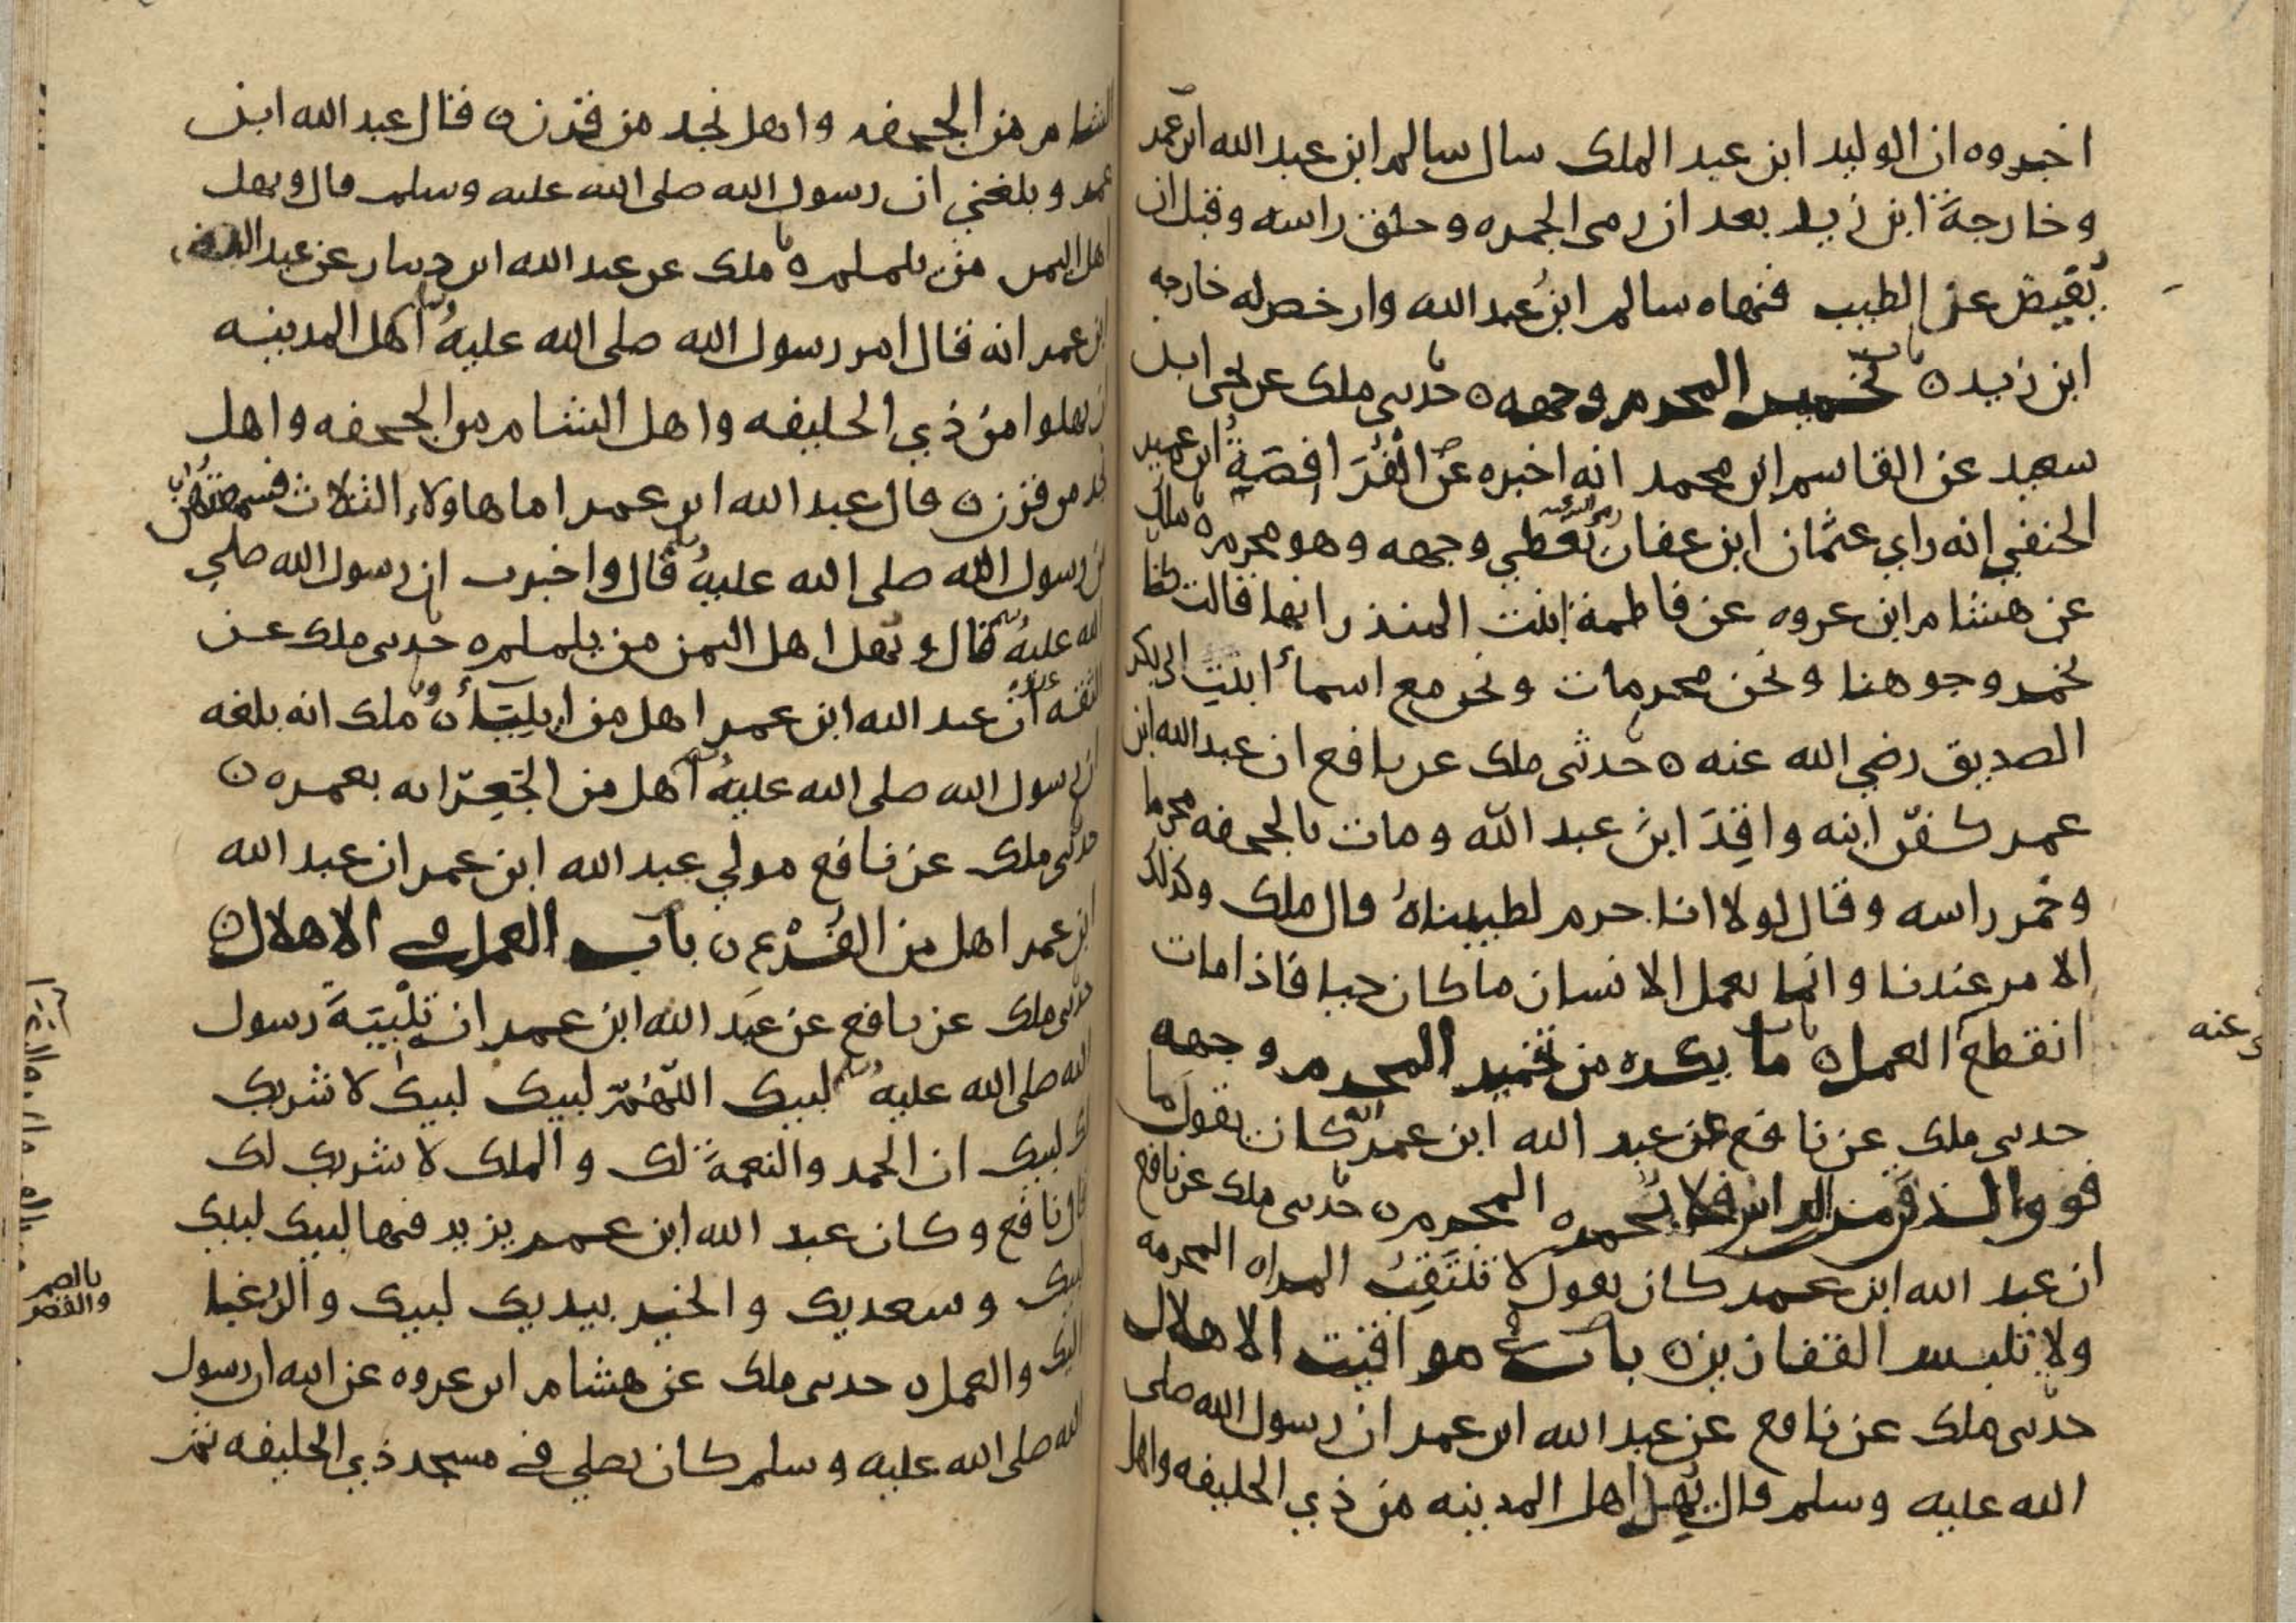 اخبروه ان الوليد ابن عبد الملك سال سالم ابن عبد الله ابن عمر
وخارجة ابن زيد بعد ان رمى الجمره وحلق راسه وقبل ان
يفيض عن الطيب فنهاه سالم ابن عبد الله وارخص له خارجه
ابن زيد ه باب تخمير المحرم وجهه ه حدثنى ملك عن يحيى ابن
سعيد عن القاسم ابن محمد انه اخبره عن الفرافصة ابن عمير
الحنفي انه راي عثمان ابن عفان رضي الله عنه يغطي وجهه وهو محرم ه ملك
عن هشام ابن عروه عن فاطمة ابنت المنذر انها قالت كنا
نخمر وجوهنا ونحن محرمات ونحن مع اسمأ ابنت ابي بكر
الصديق رضي الله عنه ه حدثنى ملك عن نافع ان عبد الله ابن
عمر كفن ابنه واقد ابن عبد الله ومات بالجحفه محرما
وخمر راسه وقال لولا انا حرم لطيبناه قال ملك وكذلك
الامر عندنا وانما يعمل الانسان ما كان حيا فاذا مات
انقطع العمل ه باب ما يكره من تخمير المحرم وجهه
حدثنى ملك عن نافع عن عبد الله ابن عمر انه كان يقول ما
فوق الذقن من الراس فلا يخمره المحرم ه حدثنى ملك عن نافع
ان عبد الله ابن عمر كان يقول لا تنتقب المراه المحرمه
ولا تلبس القفازين ه باب في مواقيت الاهلال
حدثنى ملك عن نافع عن عبد الله ابن عمر ان رسول الله صلى
الله عليه وسلم قال يهل اهل المدينه من ذي الحليفه واهل
عنه
الشام من الجحفه واهل نجد من قرن ه قال عبد الله ابن
عمر وبلغني ان رسول الله صلى الله عليه وسلم قال ويهل
اهل اليمن من يلملم ه ملك عن عبد الله ابن دينار عن عبد الله
ابن عمر انه قال امر رسول الله صلى الله عليه وسلم اهل المدينه
ان يهلوا من ذي الحليفه واهل الشام من الجحفه واهل
نجد من قرن ه قال عبد الله ابن عمر اما هاولاء الثلاث فسمعتهن
من رسول الله صلى الله عليه وسلم قال واخبرت ان رسول الله صلي
الله عليه وسلم قال ويهل اهل اليمن من يلملم ه حدثنى ملك عن
الثقه عنده ان عبد الله ابن عمر اهل من ايليأ ه ملك انه بلغه
ان رسول الله صلى الله عليه وسلم اهل من الجعرانه بعمره ه
حدثنى ملك عن نافع مولي عبد الله ابن عمر ان عبد الله
ابن عمر اهل من الفرع ه باب العمل في الاهلال ه
حدثنى ملك عن نافع عن عبد الله ابن عمر ان تلبية رسول
الله صلى الله عليه وسلم لبيك اللهم لبيك لبيك لا شريك
لك لبيك ان الحمد والنعمة لك والملك لا شريك لك
قال نافع وكان عبد الله ابن عمر يزيد فيها لبيك لبيك
لبيك وسعديك والخير بيديك لبيك والرغبا
اليك والعمل ه حدثنى ملك عن هشام ابن عروه عن ابيه ان رسول
الله صلى الله عليه وسلم كان يصلي في مسجد ذي الحليفه ثم
بالضم
والقصر